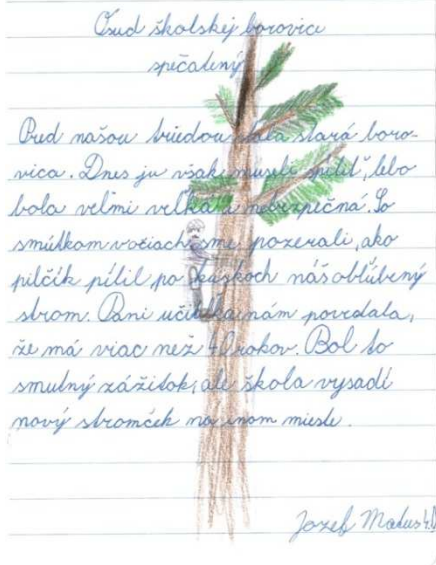 Osud školskej borovice
spečatený
Pred našou triedou stála stará boro-
vica. Dnes ju však museli spíliť, lebo
bola veľmi veľká a nebezpečná. So
smútkom v očiach sme pozerali, ako
pilčík pílil po kúskoch náš obľúbený
strom. Pani učiteľka nám povedala,
že má viac než 40 rokov. Bol to
smutný zážitok, ale škola vysadí
nový stromček na inom mieste.
Jozef Matus